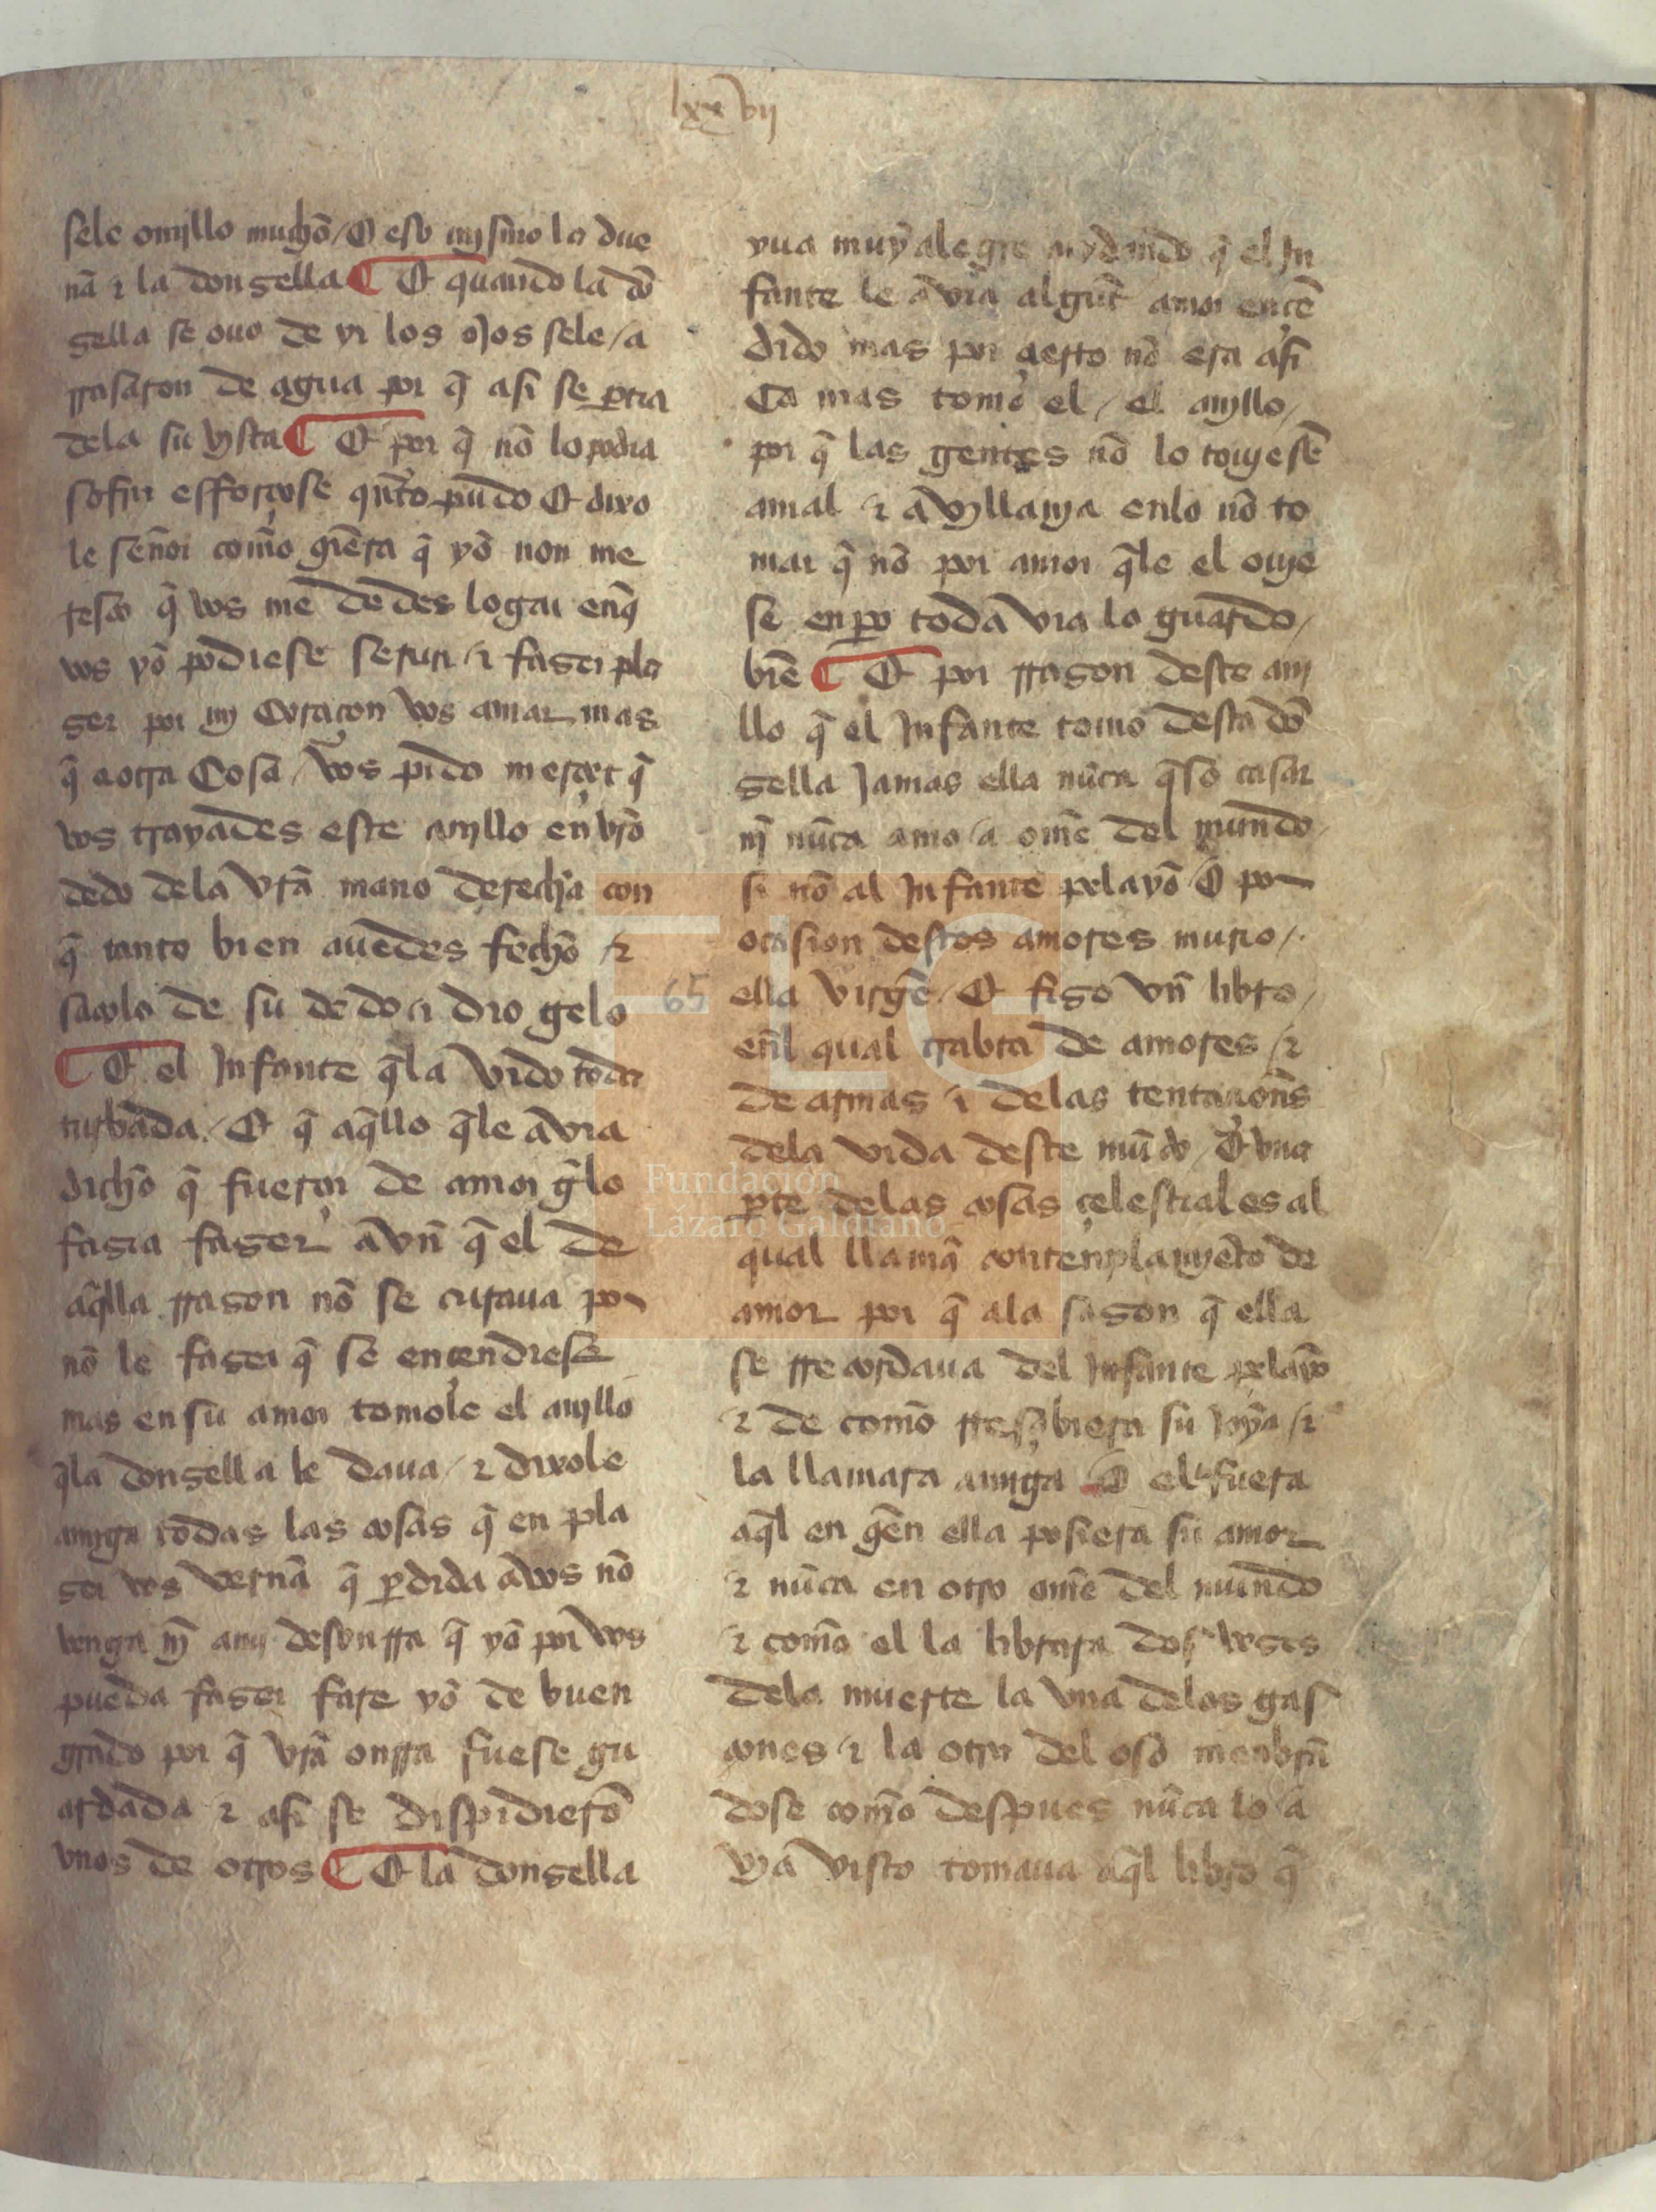 lxxvij
sele omillo muchõ / Et eso mismo la due
nã ⁊ la donsella ¶ Et quando la dõ
sella se ouo de yr los ojos sele / a
rrasaron de agua por q̃ asi se ꝑtia
dela su vista ¶ Et por q̃ nõ lo podia
sofrir efforçose qñto pudo Et dixo
le señor comõ q̃era q̃ yõ non me
resco q̃ vos me dedes logar enq̃
vos yõ podiese seruir ⁊ faser pla
ser por mj Coraçon vos amar mas
q̃ a otra Cosa / vos pido merçet q̃
vos trayades este anyllo en vr̃o
dedo dela vr̃a mano derecha con
q̃ tanto bien auedes fechõ ⁊
sacolo de su dedo ⁊ dio gelo
¶ Et el Infante q̃la vido toda
turbada / Et q̃ aq̃llo q̃le avia
dichõ q̃ fueror de amor g̃lo
fasia faser avñ q̃ el de
aq̃lla rrason nõ se curaua por
nõ le faser q̃ se ençendiese
mas en su amor tomole el anyllo
q̃la donsella le daua / ⁊ dixole
amiga todas las cosas q̃ en pla
ser vos vernã q̃ ꝑdida avos nõ
venga nj̃ amj desonrra q̃ yõ por vos
pueda faser fare yõ de buen
grado por q̃ vr̃a onrra fuese gu
ardada ⁊ asi se dispidierõ
vnos de otros ¶ Et la donsella
yua muy alegre cuydando q̃ el In
fante le avia algut amor ençẽ
dido mas por çierto nõ era asi
Ca mas tomo el / el anyllo /
por q̃ las gentes nõ lo touyesẽ
amal ⁊ a vyllanya enlo nõ to
mar q̃ nõ por amor q̃le el ouye
se enꝑo toda via lo guardo /
biẽ ¶ Et por rrason deste any
llo q̃ el Infante tomo desta dõ
sella Jamas ella nũca q̃so casar
nj̃ nũca amo / a omẽ del mundo
si nõ al Infante pelayõ Et por
ocasion destos amores murio /
65
ella virgẽ / Et fiso vñ libro /
eñl qual trabta de amores ⁊
de armas ⁊ delas tentaçioñs
dela vida deste mũdo / Et vna
ꝑte delas cosas çelestiales al
qual llamã contenplamyẽto de
amor por q̃ ala sason q̃ ella
se rrecordaua del Infante pelayo
⁊ de comõ rresçibiera su Joya ⁊
la llamara amiga Et el fuera
aq̃l en q̃en ella posiera su amor
⁊ nũca en otro omẽ del mundo
⁊ comõ el la librara dos veses
dela muerte la vna delos gas
cones ⁊ la otra del oso menbrã
dose comõ despues nũca lo a
vya visto tomaua aq̃l libro q̃
FLG
Fundación
Lázaro Galdiano